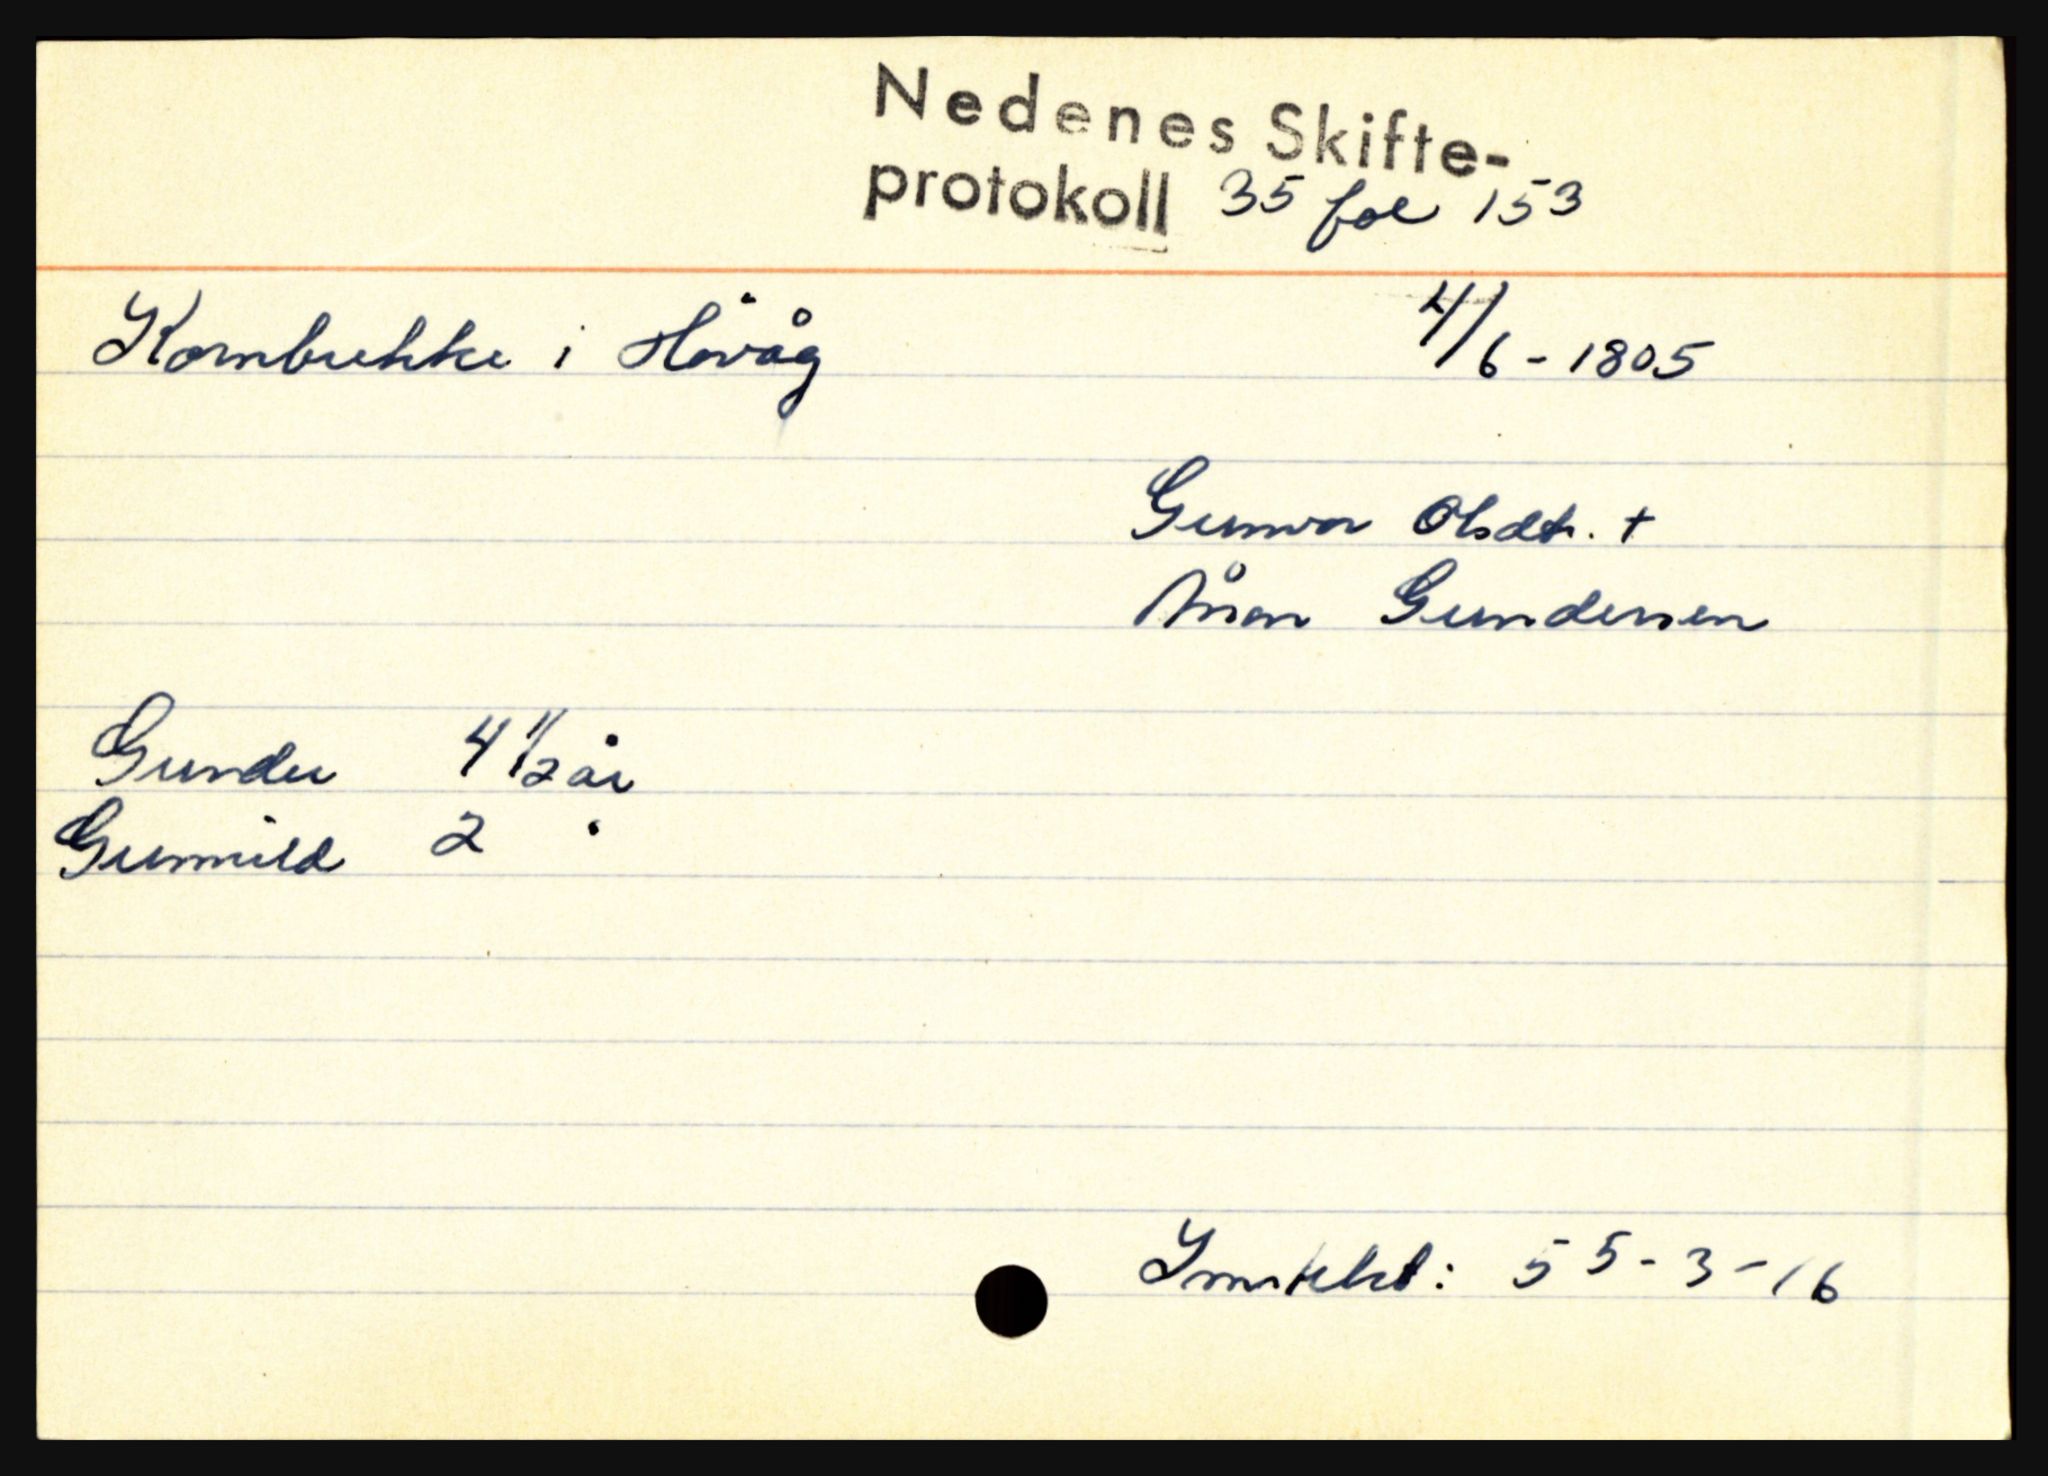 Nedenes Skifte-
protokoll 35 fol 153
Kornbrekke i Høvåg 4/6 - 1805
Gunvor Olsdtr. +
Ånon Gundersen
Gunder 4 1/2 år
Gunnild 2 "
Inntekt: 55-3-16